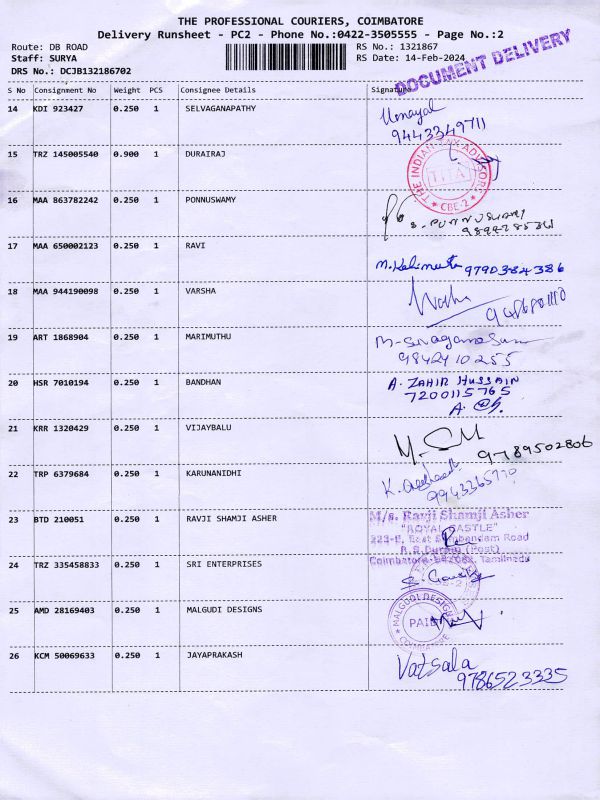 THE PROFESSIONAL COURIERS, COIMBATORE
Delivery Runsheet - PC2 - Phone No.:0422-3505555 - Page No.:2
Route: DB ROAD RS No.: 1321867
Staff: SURYA RS Date: 14-Feb-2024
DRS No.: DCJB132186702
DOCUMENT DELIVERY
S No Consignment No Weight PCS Consignee Details Signature
14 KDI 923427 0.250 1 SELVAGANAPATHY
9443349711
15 TRZ 145005540 0.900 1 DURAIRAJ
THE INDIAN TAX ADVISORS
TITA
CBE-2
16 MAA 863782242 0.250 1 PONNUSWAMY
17 MAA 650002123 0.250 1 RAVI
9790384386
18 MAA 944190098 0.250 1 VARSHA
19 ART 1868904 0.250 1 MARIMUTHU
9842410255
20 HSR 7010194 0.250 1 BANDHAN A. ZAHIR HUSSAIN
7200115765
21 KRR 1320429 0.250 1 VIJAYBALU
9789502806
22 TRP 6379684 0.250 1 KARUNANIDHI
23 BTD 210051 0.250 1 RAVJI SHAMJI ASHER M/s. Ravji Shamji Asher
"ROYAL CASTLE"
Road
(Post)
24 TRZ 335458833 0.250 1 SRI ENTERPRISES
25 AMD 28169403 0.250 1 MALGUDI DESIGNS
MALGUDI DESIGNS
PAID
COIMBATORE
26 KCM 50069633 0.250 1 JAYAPRAKASH Vatsala
9786523335